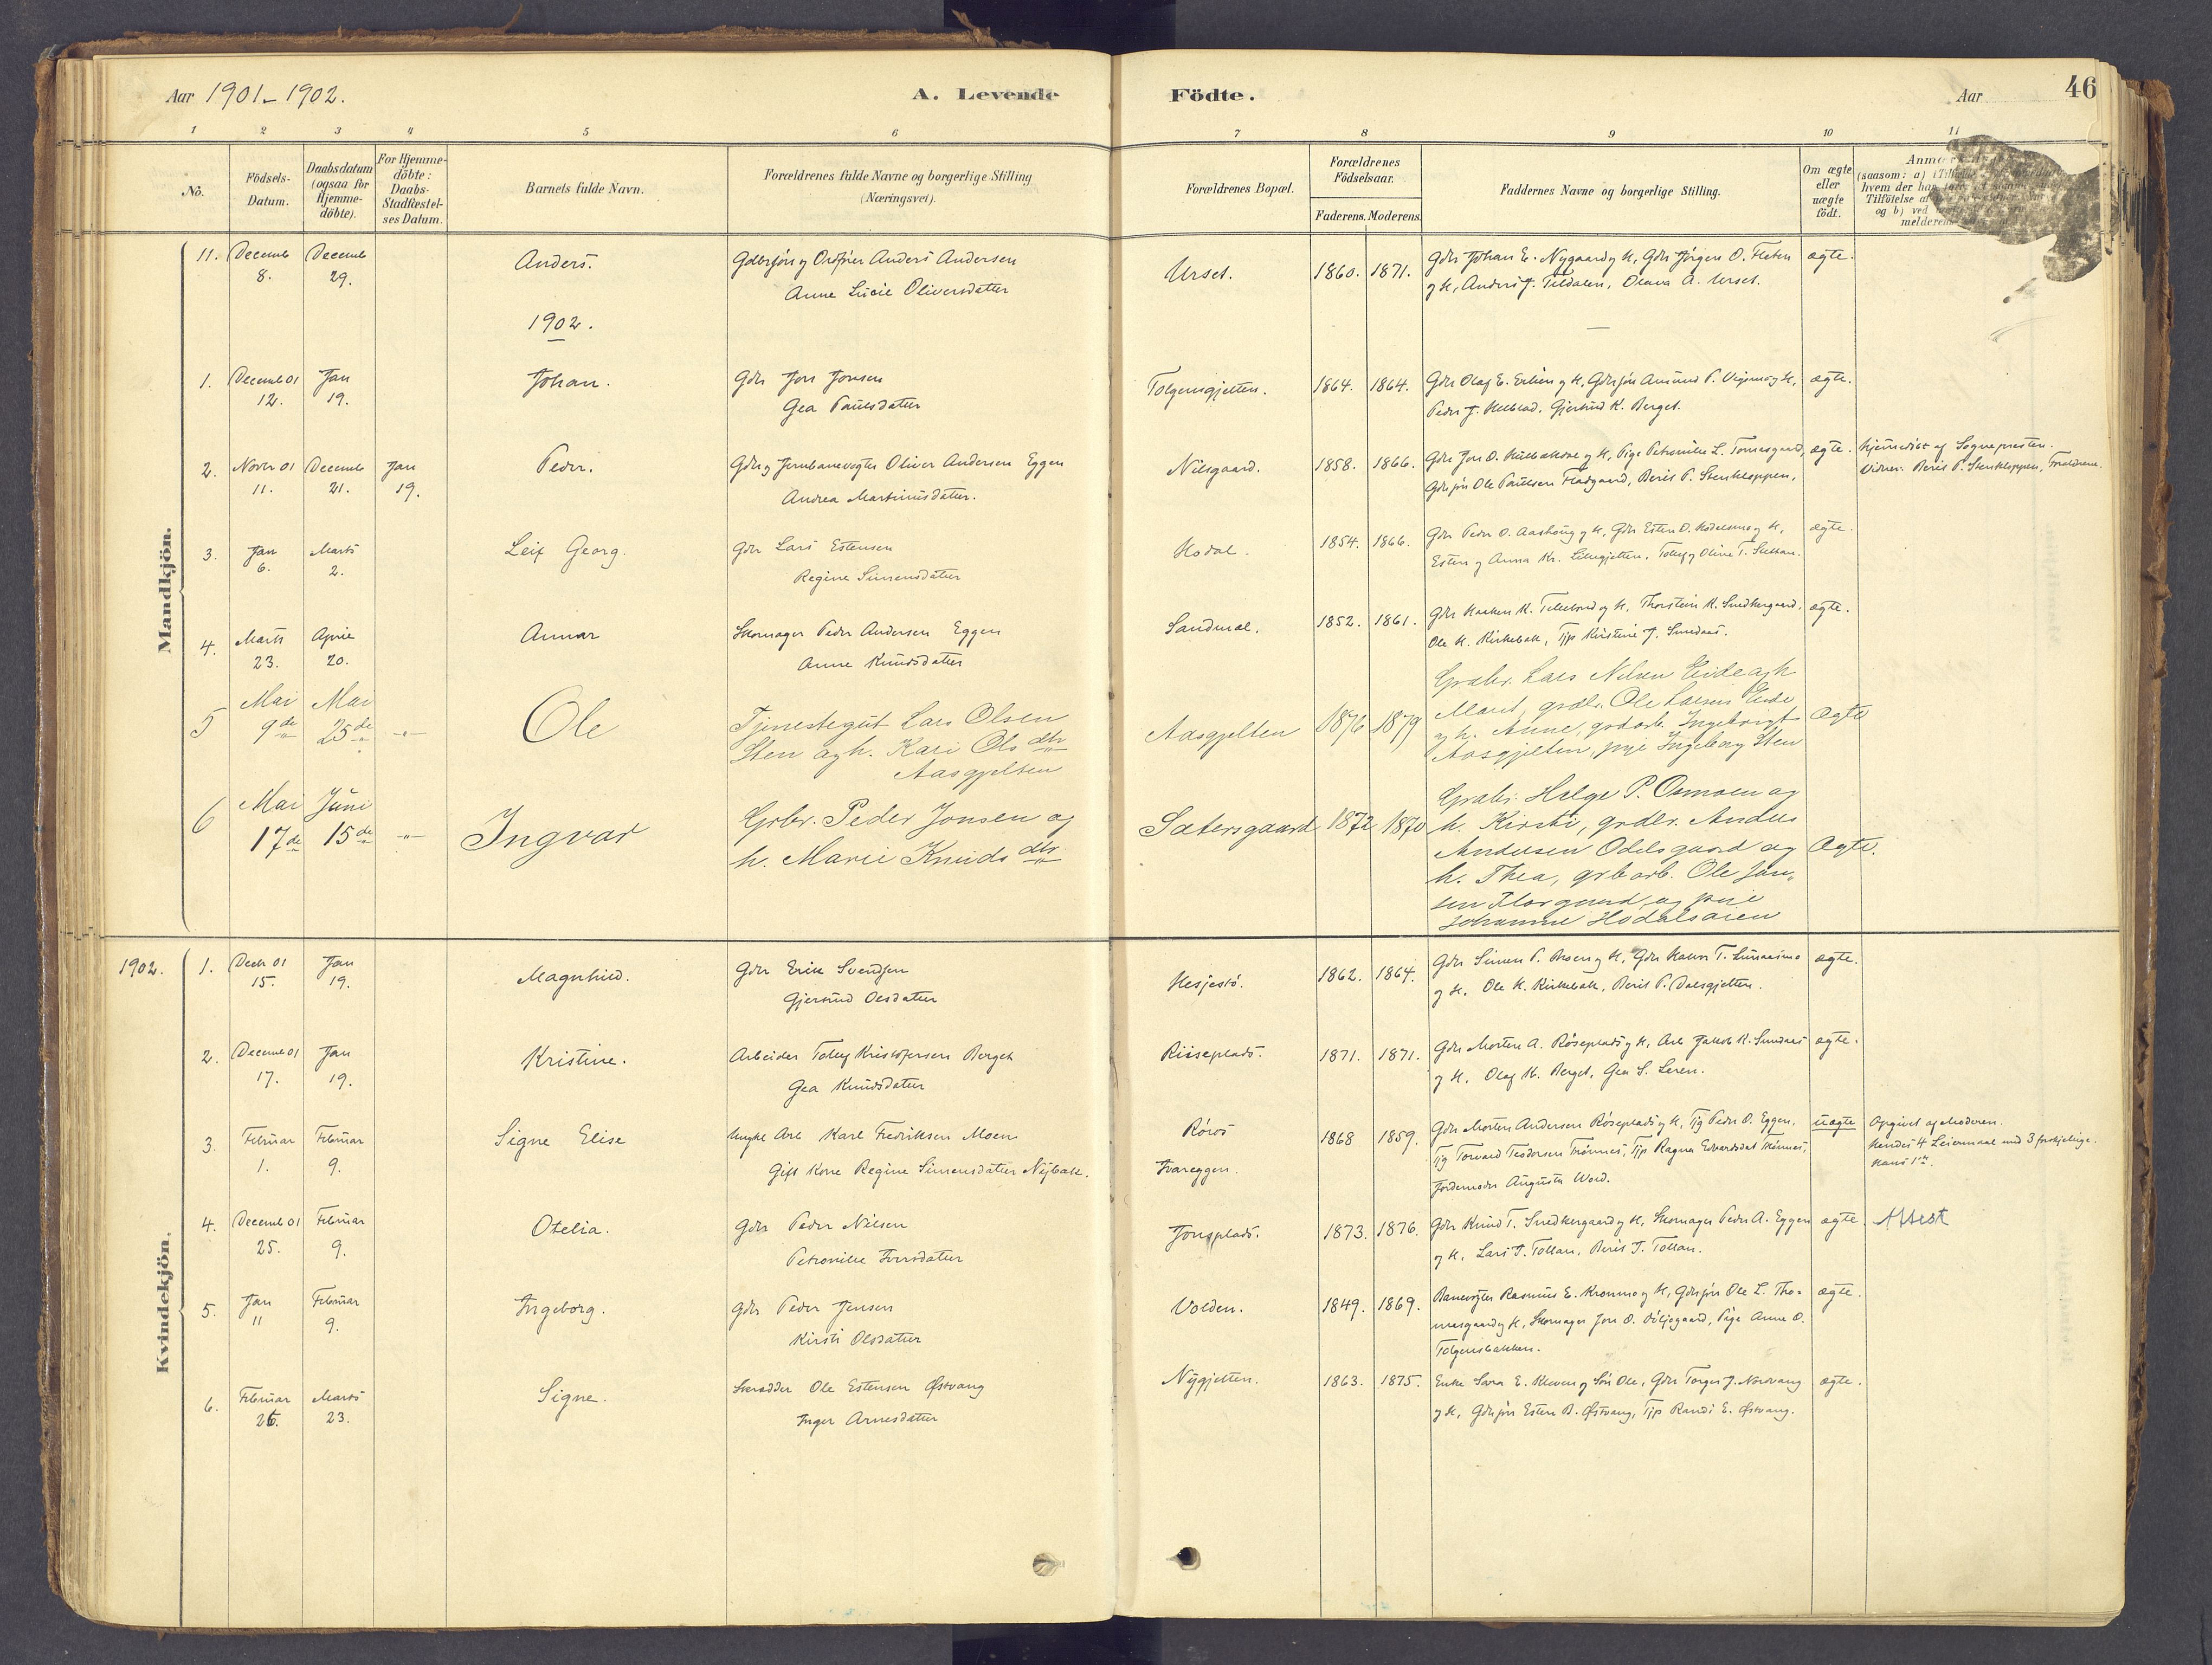 Aar 1901-1902.
A. Levende Födte.
Aar
46
1 2 3 4 5 6 7 8 9 10 11
No.
Födsels-Datum.
Daabsdatum (ogsaa for Hjemme-döbte).
For Hjemme-döbte: Daabs-Stadfæstel-ses Datum.
Barnets fulde Navn.
Forældrenes fulde Navne og borgerlige Stilling (Næringsvei).
Forældrenes Bopæl.
Forældrenes Födselsaar.
Faderens. Moderens.
Faddernes Navne og borgerlige Stilling.
Om ægte eller uægte födt.
Mandkjön.
11. Decemb 8. Decemb 29. Anders. Anders Andersen
Anne Lucie Oliversdatter
Urset. 1860. 1871. Gdbr Johan E. Nygaard og H, Gdbr Jörgen O. Fleten
og H, Anders J. Teldalen, Olava A. Urset.
ægte.
1902.
1. Decemb 01 12. Jan 19. Johan. Gdbr Jon Jonsen
Gea Paulsdatter
Tolgensgjelten. 1864. 1864. Gdbr Olaf E. Erlien og H,
Peder J. Gjertrud K. Berget.
ægte.
2. Novbr 01 11. Decemb 21. Jan 19. Peder. Gdbr og Jernbanevogter Oliver Andersen Eggen
Andrea Martinusdatter.
Nilsgaard. 1858. 1866. Pige Petronille L. Tomasgaard,
Gdbrsön Ole Paulsen Berit P. Stenkloppen,
ægte. Hjemedöbt af Sognepresten.
Vidner: Berit P. Stenkloppen, Forældrene.
3. Jan 6. Marts 2. Leif Georg. Gdbr Lars Estensen
Regine Simensdatter
Hodal. 1854. 1866. Gdbr Peder O. Aashoug og H, Gdbr Esten O. Hodalsmo og H,
Esten og Anna Kr. Lillegjelten,
ægte.
4. Marts 23. April 20. Annar Skomager Peder Andersen Eggen
Anne Knudsdatter
Sandmæl. 1852. 1861. Thorstein K. Snedkergaard,
Ole H. Kirkebak, Tjp Kirstine J. Sundmo.
ægte.
5 Mai 9de Mai 25de -"- Ole Tjenestegut Lars Olsen
Sten og h. Kari Olsdtr
Aasgjelten
Aasgjelten 1876 1879 Grdbr. Lars Nilsen Eide og h
Marit, grdbr. Ole Larsen Eide
og h. Anne, Ingebrigt
Aasgjelten, pige Ingeborg Sten
Ægte
6 Mai 17de Juni 15de -"- Ingvar Grbr. Peder Jonsen og
h. Marie Knudsdtr
Sætersgaard 1872 1870 Grdbr. Helge P. Osmoen og
h. Kirsti, grdbr. Anders
Andersen Odelsgaard og
h. Thea, grbarb. Ole Jon-
sen Florgaard og pige
Johanne Hodalsöien
Ægte.
Kvindekjön.
1902. 1. Decb 01 15. Jan 19. Magnhild. Gdbr Erik Svendsen
Gjertrud Olsdatter
Hesjestö. 1862. 1864. Gdbr Simen P. Moen og H,
og H. Ole H. Kirkebak, Berit P. Dalsgjelten.
ægte.
2. Decemb 01 17. Jan 19. Kristine. Arbeider Tollef Kristofersen Berget
Gea Knudsdatter
Riiseplads. 1871. 1871. Gdbr Morten A. Röseplads og H, Arb Jakob K. Sundmo
og H. Olaf K. Berget, Gea S. Leren.
ægte.
3. Februar 1. Februar 9. Signe Elise Ungkl Arb Karl Fredriksen Moen
Gift Kone Regine Simensdatter Nybak.
Röros
Tvareggen.
1868 1859. Gdbr Morten Andersen Röseplads og H, Tjg Peder O. Eggen,
Tjg Torvard Teodorsen Trönnes, Tjp Ragna Edvardsdat Trönnes,
Jordemoder Augusta Wold.
uægte Opgivet af Moderen.
Hendes 4 Leiermaal med 3 forskjellige.
Hans 1ste.
4. Decemb 01 25. Februar 9. Otelia. Gdbr Peder Nilsen
Petronille Iversdatter
Jonsplads. 1873. 1876. Gdbr Knud T. Snedkergaard og H, Skomager Peder A. Eggen
og H, Lars J. Tollan, Berit J. Tollan.
ægte. Attest
5. Jan 11 Februar 9. Ingeborg. Gdbr Peder Jensen
Kirsti Olsdatter
Volden. 1849. 1869. Banevogter Rasmus E. Kronmo og H, Gdbrsön Ole L. Tho-
masgaard og H, Skomager Jon O. Pige Anne O.
Tolgensbakken.
ægte.
6. Februar 26. Marts 23. Signe. Skrædder Ole Estensen Østvang
Inger Arnesdatter
Nygjelten. 1863. 1875. Enke Sara E. Kleven og Sön Ole, Gdbr Torger J. Nordvang
og H, Gdbrsön Esten B. Østvang, Tjp Randi E. Østvang.
ægte.